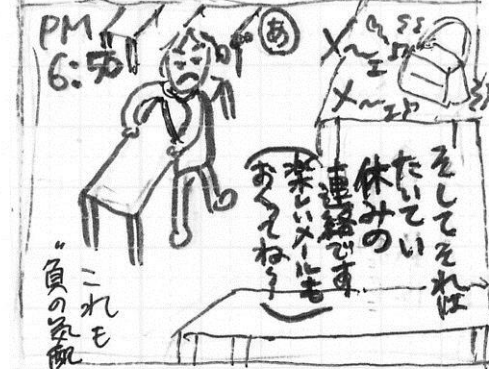 PM
6:50
あ
メ〜ェ♪
メ〜ェ♪
そしてそれは
たいてい
休みの
連絡です
楽しいメールも
おくってね〜
これも
"負の気配